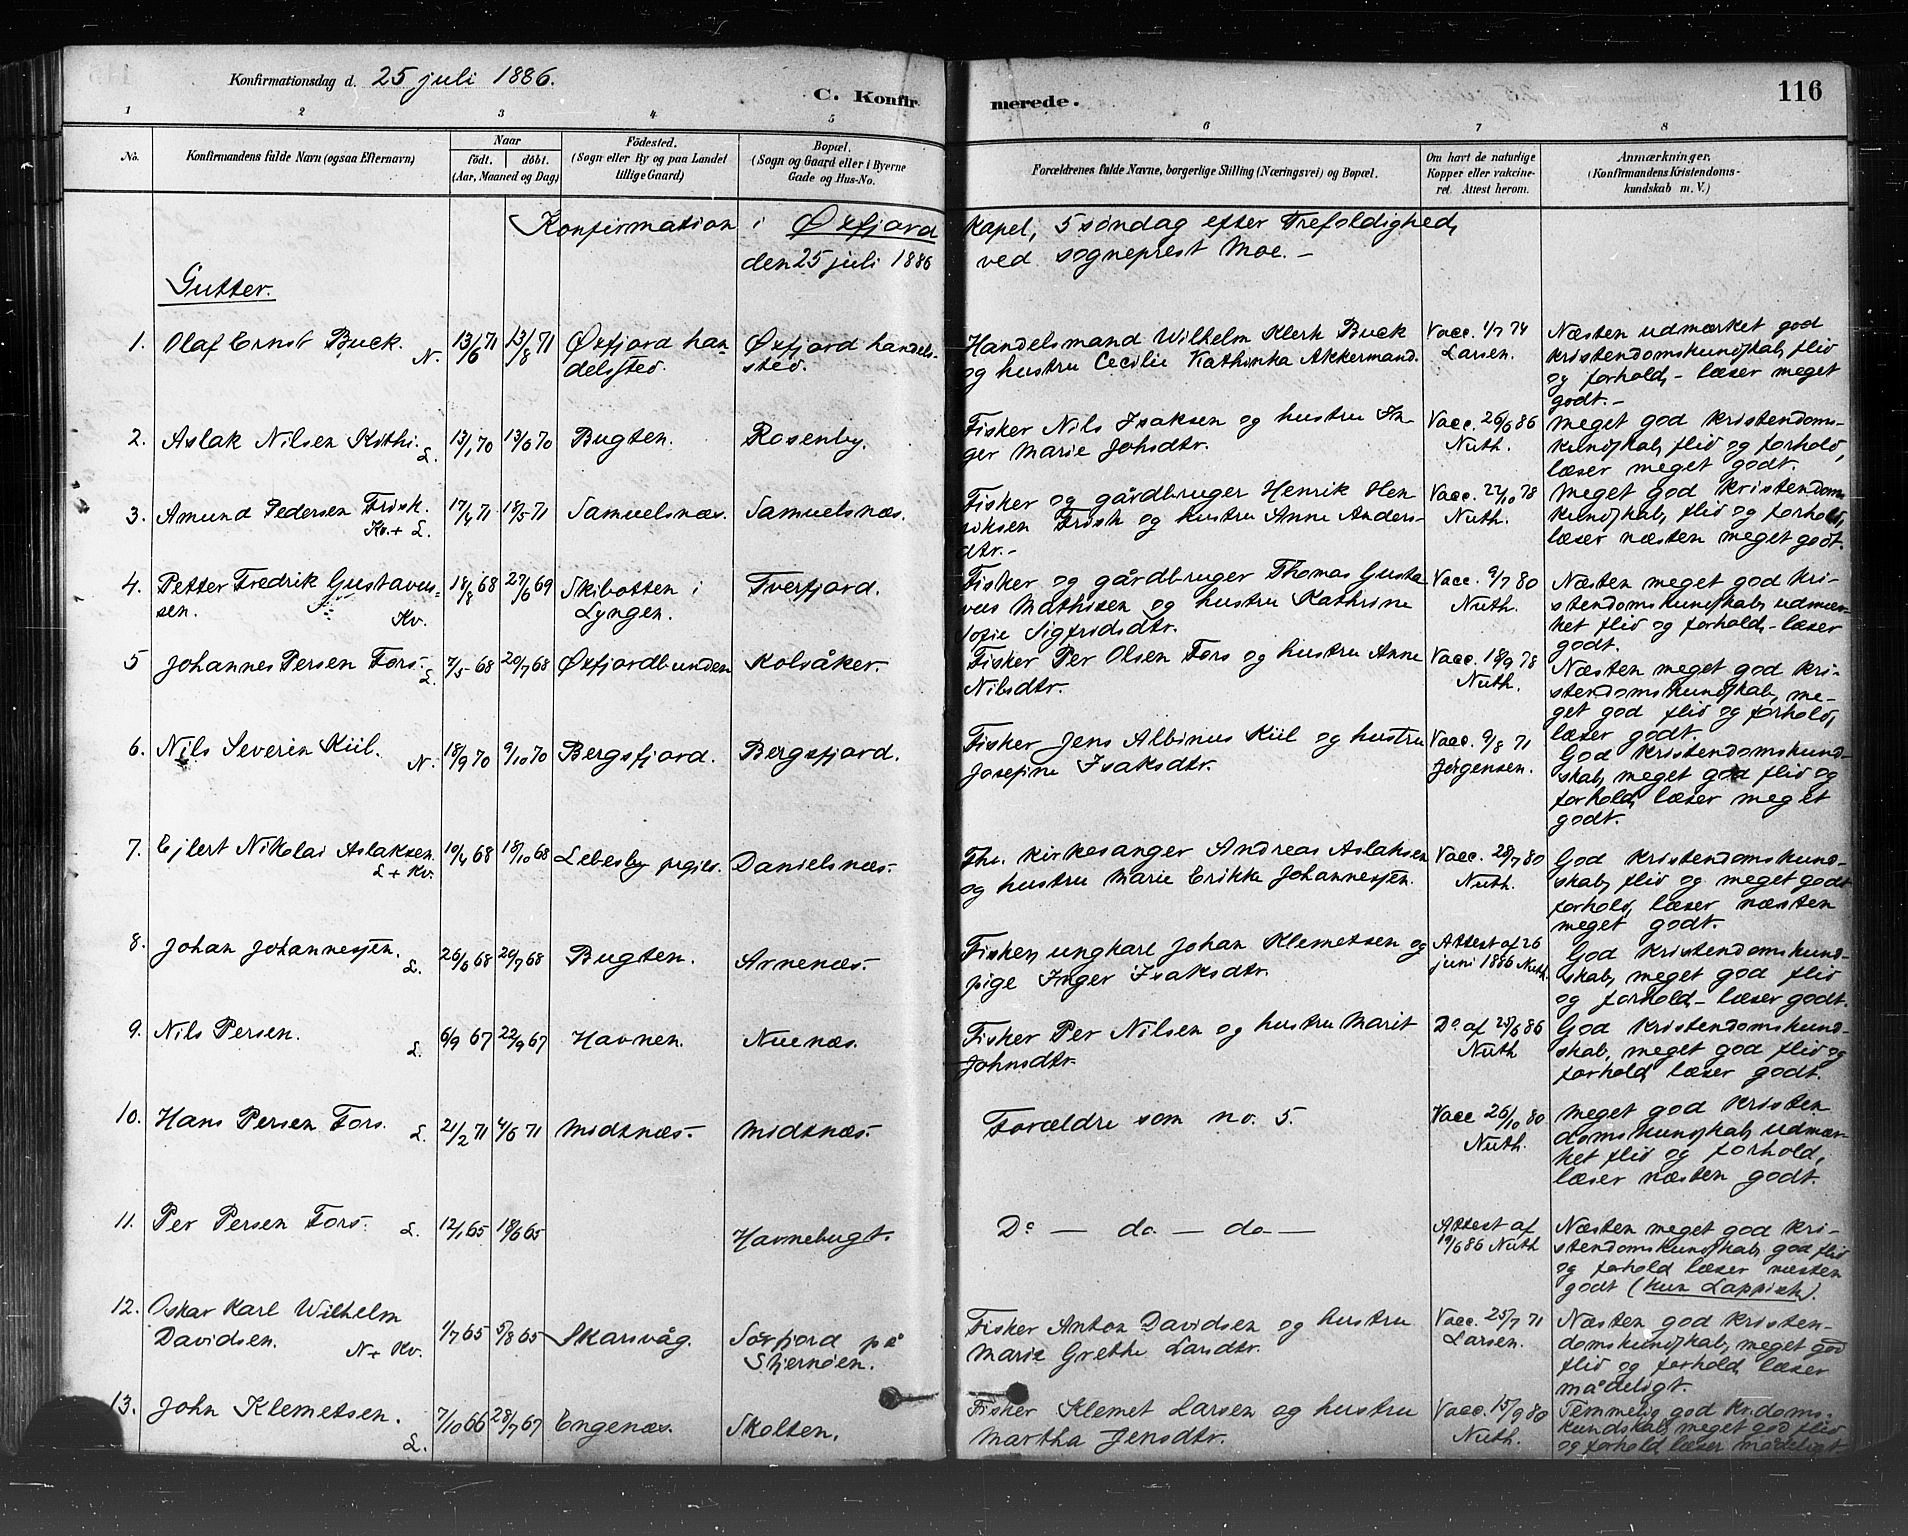 Konfirmationsdag d. 25 juli 1886.
C. Konfirmerede.
116
1 2 3 4 5 6 7 8
No.
Konfirmandens fulde Navn (ogsaa Efternavn)
Naar
født. døbt.
(Aar, Maaned og Dag)
Fødested.
(Sogn eller By og paa Landet
tillige Gaard)
Bopæl.
(Sogn og Gaard eller i Byerne
Gade og Hus-No.
Forældrenes fulde Navne, borgerlige Stilling (Næringsvei) og Bopæl.
Om havt de naturlige
Kopper eller vakcine-
ret. Attest herom.
Anmærkninger.
(Konfirmandens Kristendoms-
kundskab m. V.)
Konfirmation i Øxfjord kapel, 5 søndag efter Trefoldighed,
den 25 juli 1886 ved sogneprest Moe. –
Gutter.
1. Olaf Ernst Buck. N.
13/6 71 13/8 71
Øxfjord han-
delssted.
Øxfjord handels-
sted.
Handelsmand Wilhelm Klerk Buck
og hustru Cecilie Kathinka Akkermand.
Vacc. 1/7 74
Larsen.
Næsten udmærket god
kristendomskundskab, flid
og forhold, – læser meget
godt. –
2. Aslak Nilsen Kithi. L.
13/1 70 13/6 70
Bugten.
Rosenby.
Fisker Nils Isaksen og hustru In-
ger Marie Johsdtr.
Vacc. 26/6 86
Nuth.
Meget god kristendoms-
kundskab, flid og forhold,
læser meget godt.
3. Amund Pedersen Frisk. Kv. + L.
17/4 71 18/5 71
Samuelsnæs.
Samuelsnæs.
Fisker og gårdbruger Henrik Hen
riksen Frisk og hustru Anne Anders-
dtr. –
Vacc. 22/10 78
Nuth.
Meget god kristendoms
kundskab, flid og forhold,
læser næsten meget godt.
4. Petter Fredrik Gustavus-
sen. Kv.
18/8 68 27/6 69
Skibotten i
Lyngen.
Tverfjord.
Fisker og gårdbruger Thomas Gusta
vus Mathisen og hustru Kathrine
Sofie Sigfridsdtr.
Vacc. 9/7 80
Nuth.
Næsten meget god kri-
stendomskundskab, udmær-
ket flid og forhold, – læser
godt.
5 Johannes Persen Fors. L.
7/5 68 20/7 68
Øxfjordbunden
Kolsåker.
Fisker Per Olsen Fors og hustru Anne
Nilsdtr.
Vacc. 18/9 78
Nuth.
Næsten meget god kri-
stendomskundskab, me-
get god flid og forhold,
læser godt.
6. Nils Severin Kiil. N.
18/9 70 9/10 70
Bergsfjord.
Bergsfjord.
Fisker Jens Albinus Kiil og hustru
Josefine Isaksdtr.
Vacc. 9/8 71
Jørgensen.
God kristendomskund-
skab, meget god flid og
forhold, læser meget
godt.
7. Ejlert Nikolai Aslaksen. L + Kv.
10/4 68 18/10 68
Lebesby prgjes.
Danielsnæs.
Fhv. kirkesanger Andreas Aslaksen
og hustru Marie Erikke Johannessen.
Vacc. 28/7 80
Nuth.
God kristendomskund-
skab, flid og meget godt
forhold, læser næsten
meget godt.
8. Johan Johannessen. L.
26/6 68 20/7 68
Bugten.
Arnenæs.
Fisker, ungkarl Johan Klemetsen og
pige Inger Isaksdtr.
Attest af 26
juni 1886 Nuth.
God kristendomskund-
skab, meget god flid
og forhold – læser godt.
9. Nils Persen. L.
6/9 67 22/9 67
Havnen.
Nuenæs.
Fisker Per Nilsen og hustru Marit
Johnsdtr.
Do. af 25/6 86
Nuth
God kristendomskund-
skab, meget god flid og
forhold, læser godt.
10. Hans Persen Fors. L.
21/2 71 4/6 71
Midtnæs.
Midtnæs.
Forældre som no. 5.
Vacc 26/10 80
Nuth.
Meget god kristen
domskundskab, udmær-
ket flid og forhold,
læser næsten godt.
11. Per Persen Fors. L.
12/1 65 18/6 65
Havnebugt.
Do – do – do –
Attest af
19/6 86 Nuth
Næsten meget god kri-
stendomskundskab, god flid
og forhold læser næsten
godt (kun Lappisk).
12. Oskar Karl Wilhelm
Davidsen. N + Kv.
1/7 65 5/8 65
Skarsvåg.
Sørfjord på
Stjernøen.
Fisker Anton Davidsen og hustru
Marie Grethe Larsdtr.
Vacc. 25/7 71
Larsen.
Næsten god kristen-
domskundskab, meget god
flid og forhold, læser
mådeligt.
13. John Klemetsen. L.
7/10 66 28/7 67
Engenæs.
Skolten.
Fisker Klemet Larsen og hustru
Martha Jensdtr.
Vacc. 15/9 80
Nuth.
Temmelig god kr.doms-
kundskab, meget god flid
og forhold, læser mådeligt